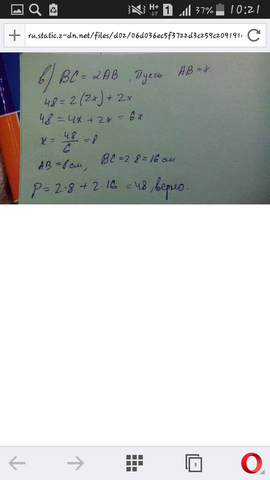 37% 10:21
ru.static.z-dn.net/files/d02/06d036ec5f3722d3c259c209191
в) BC = 2AB, Пусть AB = x
48 = 2(2x) + 2x
48 = 4x + 2x = 6x
x = 48/6 = 8
AB = 8 см, BC = 2·8 = 16 см
P = 2·8 + 2·16 = 48, верно.